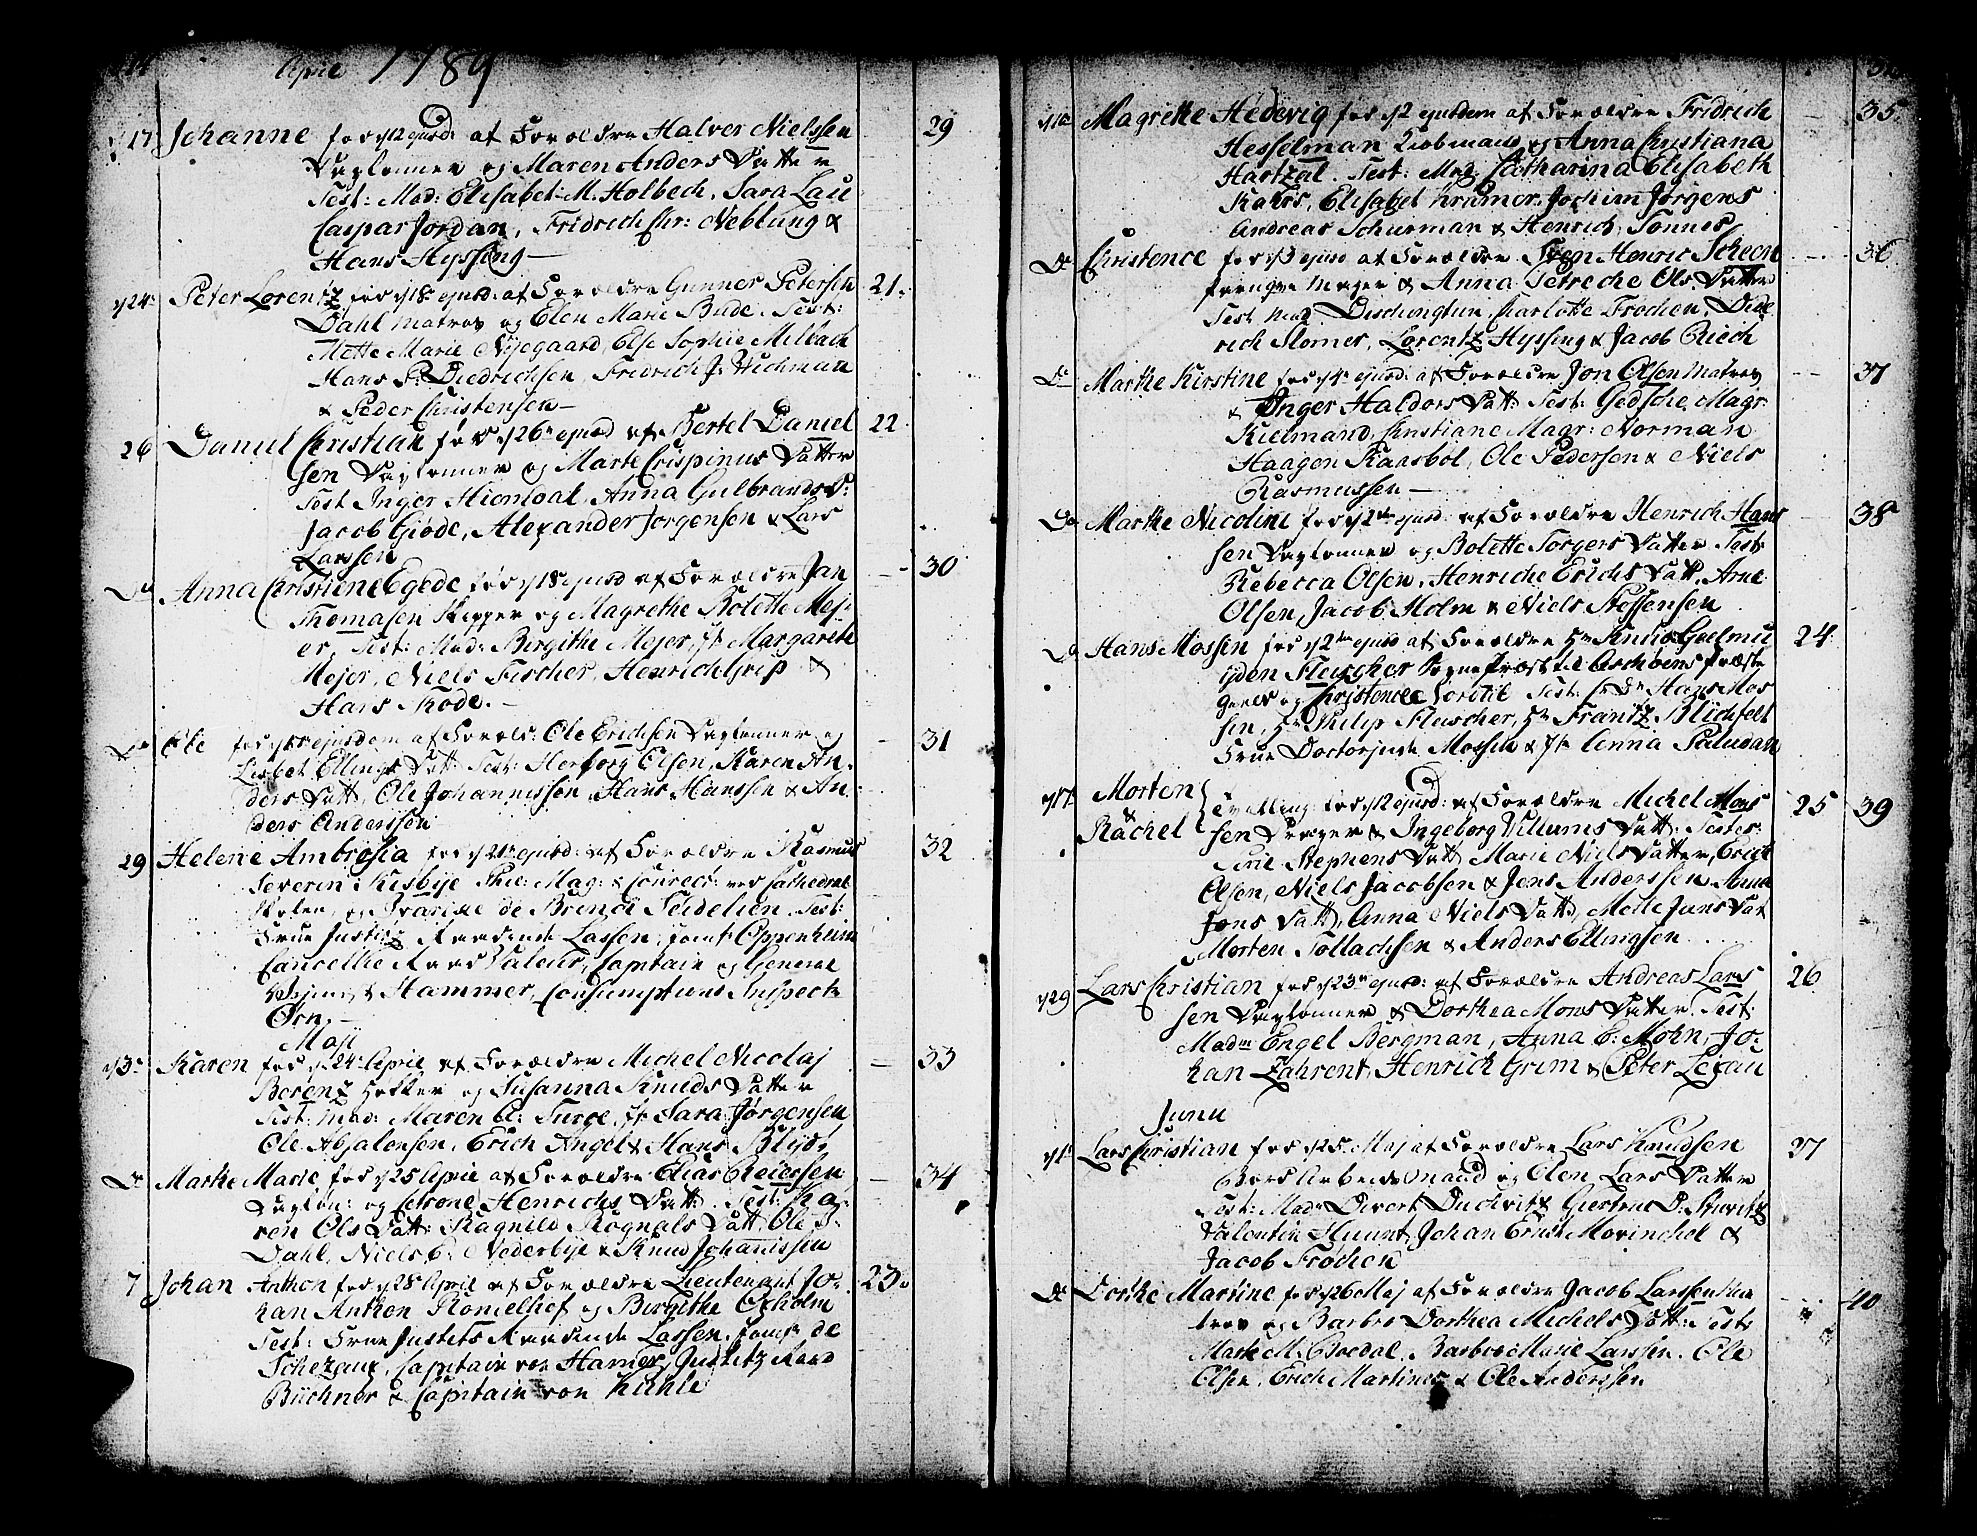 April 1789
d 17 Johanne fød d 12 ejusd: af Forældre Halver Nielssen 29
Dagløner og Maren Anders Datter
Test: Mad: Elisabet M. Holbech, Sara Lau
Caspar Jordan, Fridrich Chr: Neblung &
Hans Hyssing —
d 24 Peter Lorentz fød d 18 ejusd: af Forældre Gunner Petersen 21.
Dahl Matros og Elen Marie Bude. Test:
Mette Marie Nyegaard, Else Sophie Milbach
Hans P. Diedrichsen, Fridrich J. Wichman
& Peder Christensen —
26 Daniel Christian fød d 26 ejusd af Bertel Daniel 22
sen Dagløner og Marte Crispinus Datter
Test Inger Hiordal, Anna Gulbrands D:
Jacob Giøde, Alexander Jorgensen & Lars
Larssen
Do Anna Christine Egede fød d 18 ejusd af Forældre Jan — 30
Thomasen Skipper og Magrethe Bolette Mej
er. Test: Mad: Birgithe Mejer, Jfr Margarethe
Mejer, Niels Fischer, Henrich Grip &
Hans Rode. —
Do Ole fød ejusdem af Foræld: Ole Erichsen Dagløner og — 31
Lisbet Ellings Datt: Test: Herborg Olsen, Karen An-
ders Datt, Ole Johannissen, Hans Hanssen & An-
ders Anderssen
29 Helene Ambrosia fød d 21 ejusd: af Forældre Rasmus 32
Severin Kisbye Phil: Mag: & Conrect: ved Cathedral
Skolen, og de Brinch Seidelien. Test:
Frue Justitz Raadinde Lassen, Jomfr Oppenheim
Cancellie Raad Valeur, Capitain og General
Hammer, Consumptions Inspect:
Ørn. —
Maji
d 3 Karen fød d 24 April af Forældre Michel Nicolaj — 33
Borentz og Susanna Knuds Datter
Test: Mad: Maren Jfr Sara Jørgensen
Ole Absalonsen, Erich Angel & Hans Blyd
Do Marthe Marie fød d 25 April af Forældre Elias Reierssen — 34
Dagløn: og Petrone Henrichs Datt: Test: Ka-
ren Ols Datt: Ragnild Rognals Datt: Ole P.
Dahl, Niels C: Nederbye & Knud Johanissen
7 Johan Anthon fød d 28 April af Forældre Lieutenant Jo- 23.
han Anthon Romelhof og Birgithe Oxholm
Test: Frue Justits Raadinde Lassen, Jomfr de
Schezauz, Capitain von Hamer, Justitz Raad
Büchner & Capitain von Kuhle
d 10 Magrethe Hedevig fød d 2 ejusdem af Forældre Fridrich — 35
Hesselman Kiøbmand og Anna Christiana
Hartzal. Test: Mad: Catharina Elisabeth
Kahrs, Elisabet Kramer, Jochim Jørgens
Andreas Schurman & Henrich Tonnes
Do Christence fød d 3 ejusd af Forældre Sven Henric Scheen — 36
& Anna Petreche Ols Datter
Test Mad. Dischingtun, Charlotte Frochen, Dide
rich Slomer, Lorentz Hyssing & Jacob Riech
Do Marthe Kirstine fød d 4 ejusd: af Forældre Jon Olsen Matros — 37
& Inger Haldors Datt: Test: Gedsche Magr:
Kielmand, Christiane Magr: Norman
Haagen Raasböl, Ole Pedersen & Niels
Rasmussen —
Do Marthe Nicoline fød d 2 ejusd: af Forældre Henrich Hans — 38
sen Dagløner og Bolette Torgers Datter. Test:
Rebecca Olsen, Henriche Erichs Datt, Arne
Olsen, Jacob Holm & Niels Steffensen
Do Hans Mossin fød d 2 ejusd af Forældre Hr Knud Geelmu 24
yden Fleischer Sogne Præst til Aschvens Præste
gield og Christence Test: Hr Dr Hans Mos
sin, Hr Philip Fleischer, Hr Frantz Blichfelt
Frue Doctorinde Mossin & Jfr Anna Paludan
d 17 Morten & Rachel Tvilling: fød d 12 ejusd: af Forældre Michel Mons 25 39
sen & Ingeborg Villums Datt: Testes:
Siri Stephens Datt, Marie Niels Datter, Erich
Olsen, Niels Jacobsen & Jens Anderssen, Anna
Jons Datt, Anna Niels Datt, Mette Juns Dat
Morten Tollachsen & Anders Ellingsen
d 29 Lars Christian fød d 23 ejusd: af Forældre Andreas Lars 26
sen Dagløner & Dorthea Mons Datter. Test:
Madm Engel Bergman, Anna C: Mohn, Jo-
han Zahrent, Henrich Grim & Peter Legau
Junii
d 1 Lars Christian fød d 25 Maj af Forældre Lars Knudsen 27
Arbeids Mand og Elen Lars Datter
Test: Mad: Divert Duchvitz, Giertrud D. Skuvitz
Valentin Huunt, Johan Ernst Morinchol &
Jacob Frøchen
Do Dorthe Marine fød d 26 Maj af Forældre Jacob Larssen Ma — 40
tros og Barbro Dorthea Michels Datt: Test:
Marte M: Boedal, Barbro Marie Larssen, Ole
Olsen, Erich Martinus & Ole Anderssen